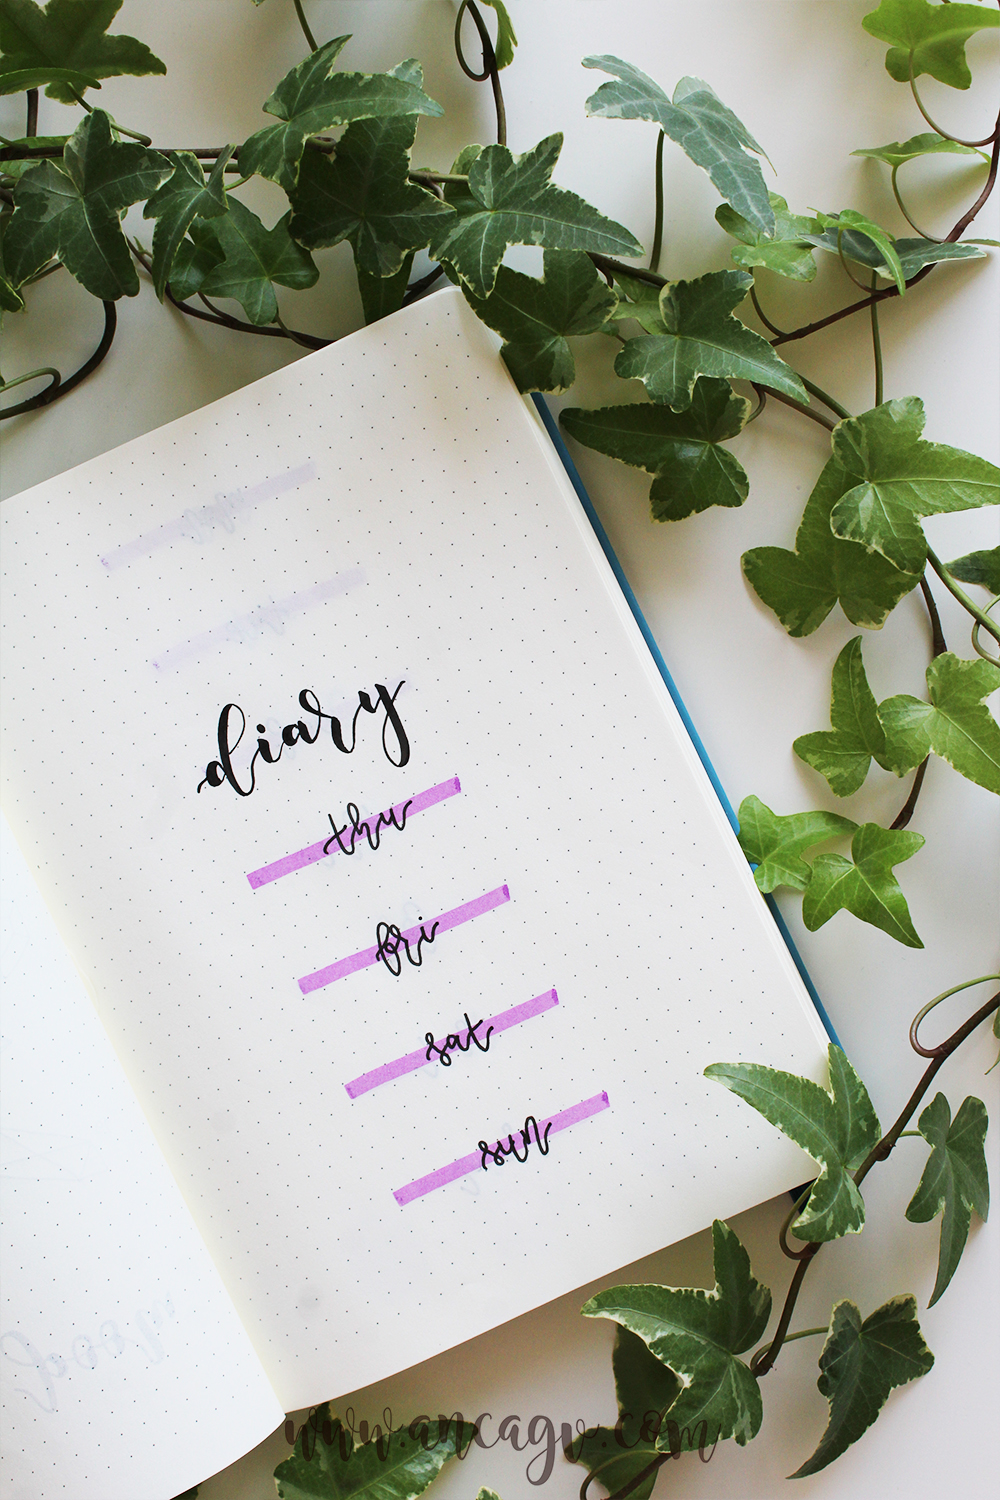 diary
thu
fri
sat
sun
mood
www.ancagv.com